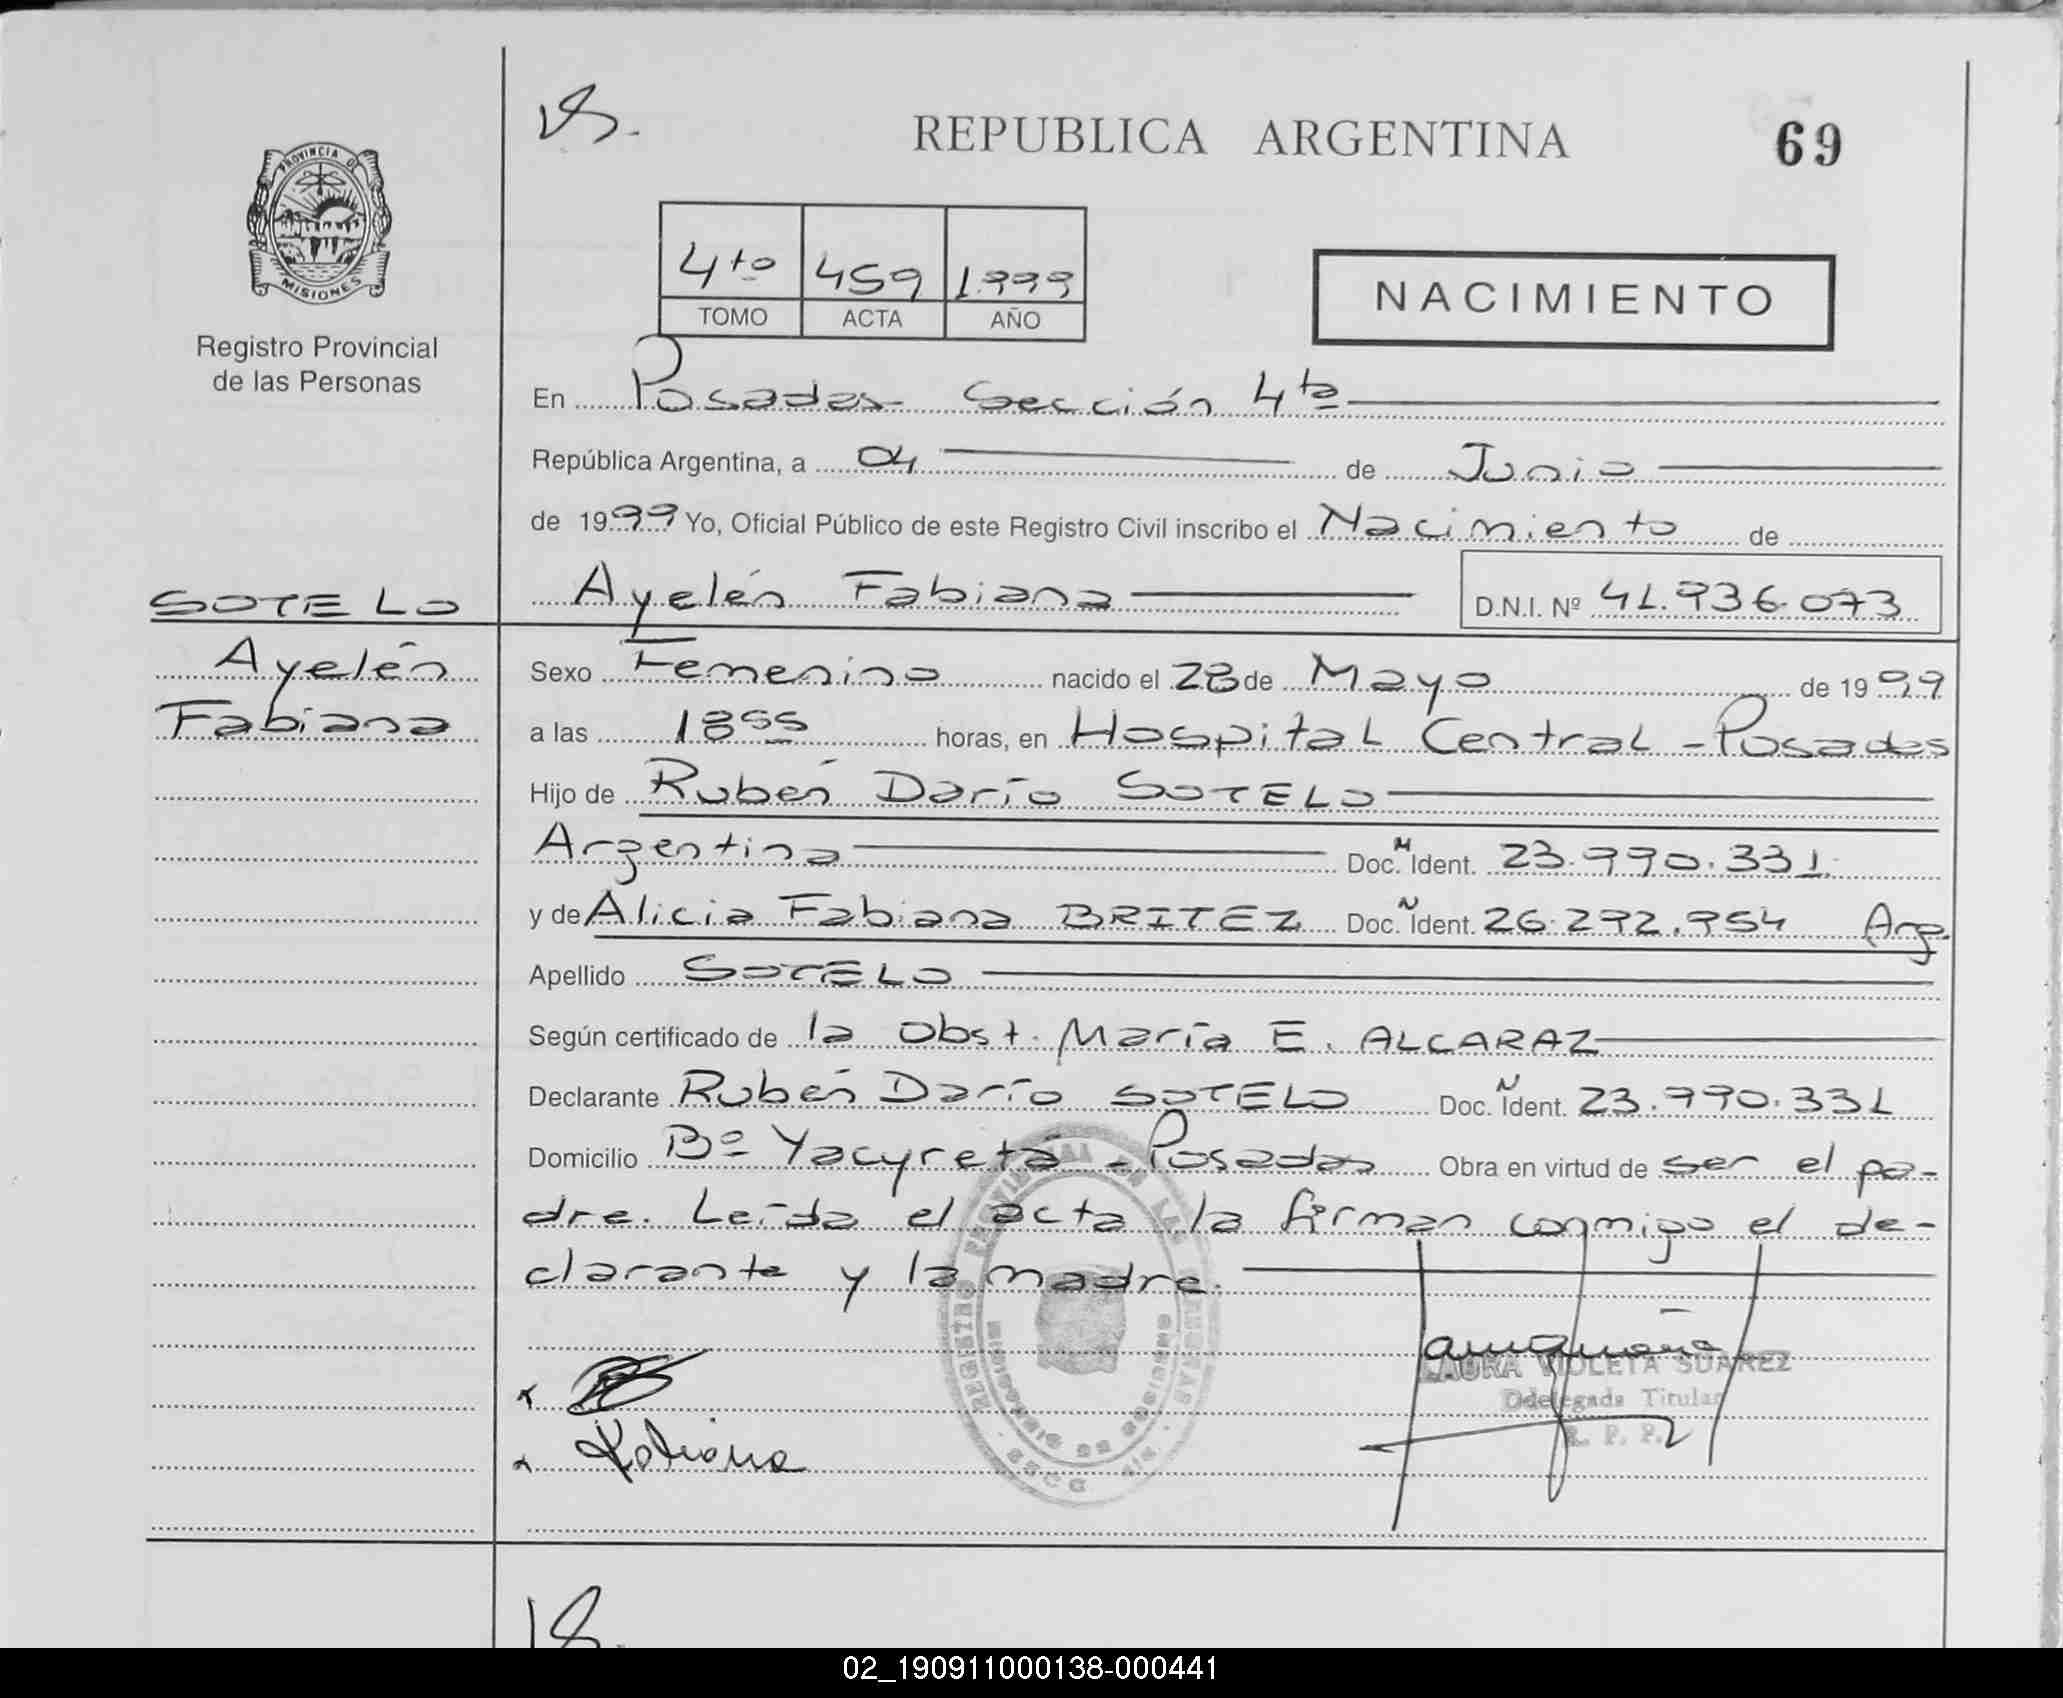 VS.
REPUBLICA ARGENTINA
69
PROVINCIA DE
MISIONES
Registro Provincial
de las Personas
4to 459 1999
TOMO ACTA AÑO
NACIMIENTO
En Posadas Sección 4ta
República Argentina, a 04 de Junio
de 1999 Yo, Oficial Público de este Registro Civil inscribo el Nacimiento de
Ayelén Fabiana D.N.I. Nº 41.936.073
SOTELO
Ayelén
Fabiana
Sexo Femenino nacido el 28 de Mayo de 1999
a las 18 55 horas, en Hospital Central - Posadas
Hijo de Rubén Darío SOTELO
Argentino Doc. M Ident. 23.990.331
y de Alicia Fabiana BRITEZ Doc. Ñ Ident. 26.292.954 Arg.
Apellido SOTELO
Según certificado de la Obst. María E. ALCARAZ
Declarante Rubén Darío SOTELO Doc. Ñ Ident. 23.990.331
Domicilio Bº Yacyretá - Posadas Obra en virtud de ser el pa-
dre. Leída el acta la firman conmigo el de-
clarante y la madre.
LAURA VIOLETA SUAREZ
Ddelegada Titular
R. P. P.
Fabiana
02_190911000138-000441